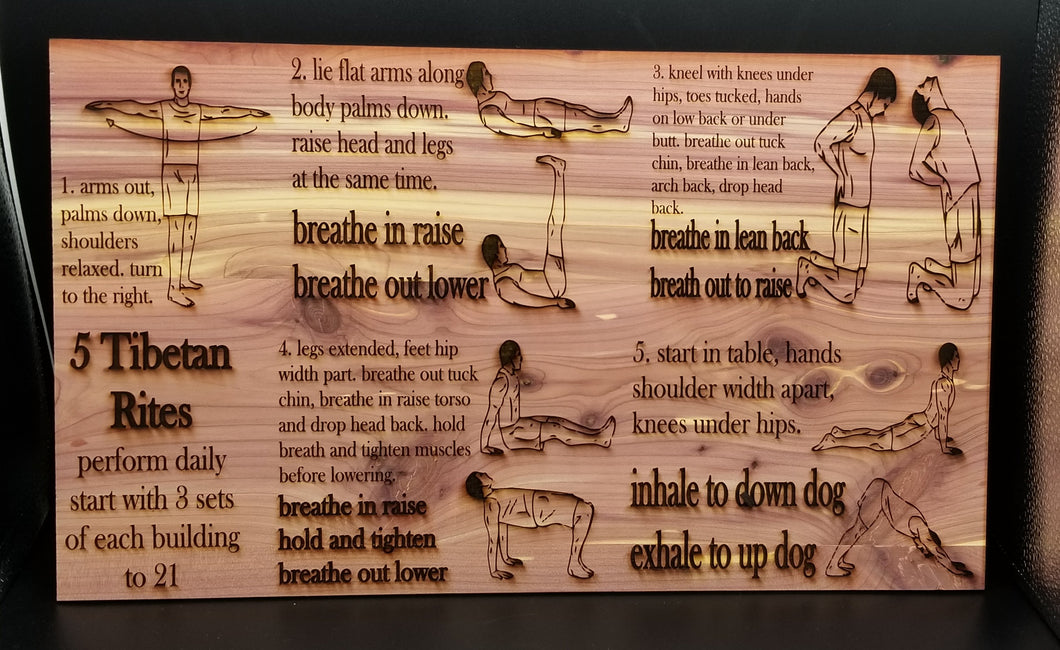 1. arms out,
palms down,
shoulders
relaxed. turn
to the right.
2. lie flat arms along
body palms down.
raise head and legs
at the same time.
breathe in raise
breathe out lower
3. kneel with knees under
hips, toes tucked, hands
on low back or under
butt. breathe out tuck
chin, breathe in lean back,
arch back, drop head
back.
breathe in lean back
breath out to raise
5 Tibetan
Rites
perform daily
start with 3 sets
of each building
to 21
4. legs extended, feet hip
width part. breathe out tuck
chin, breathe in raise torso
and drop head back. hold
breath and tighten muscles
before lowering.
breathe in raise
hold and tighten
breathe out lower
5. start in table, hands
shoulder width apart,
knees under hips.
inhale to down dog
exhale to up dog